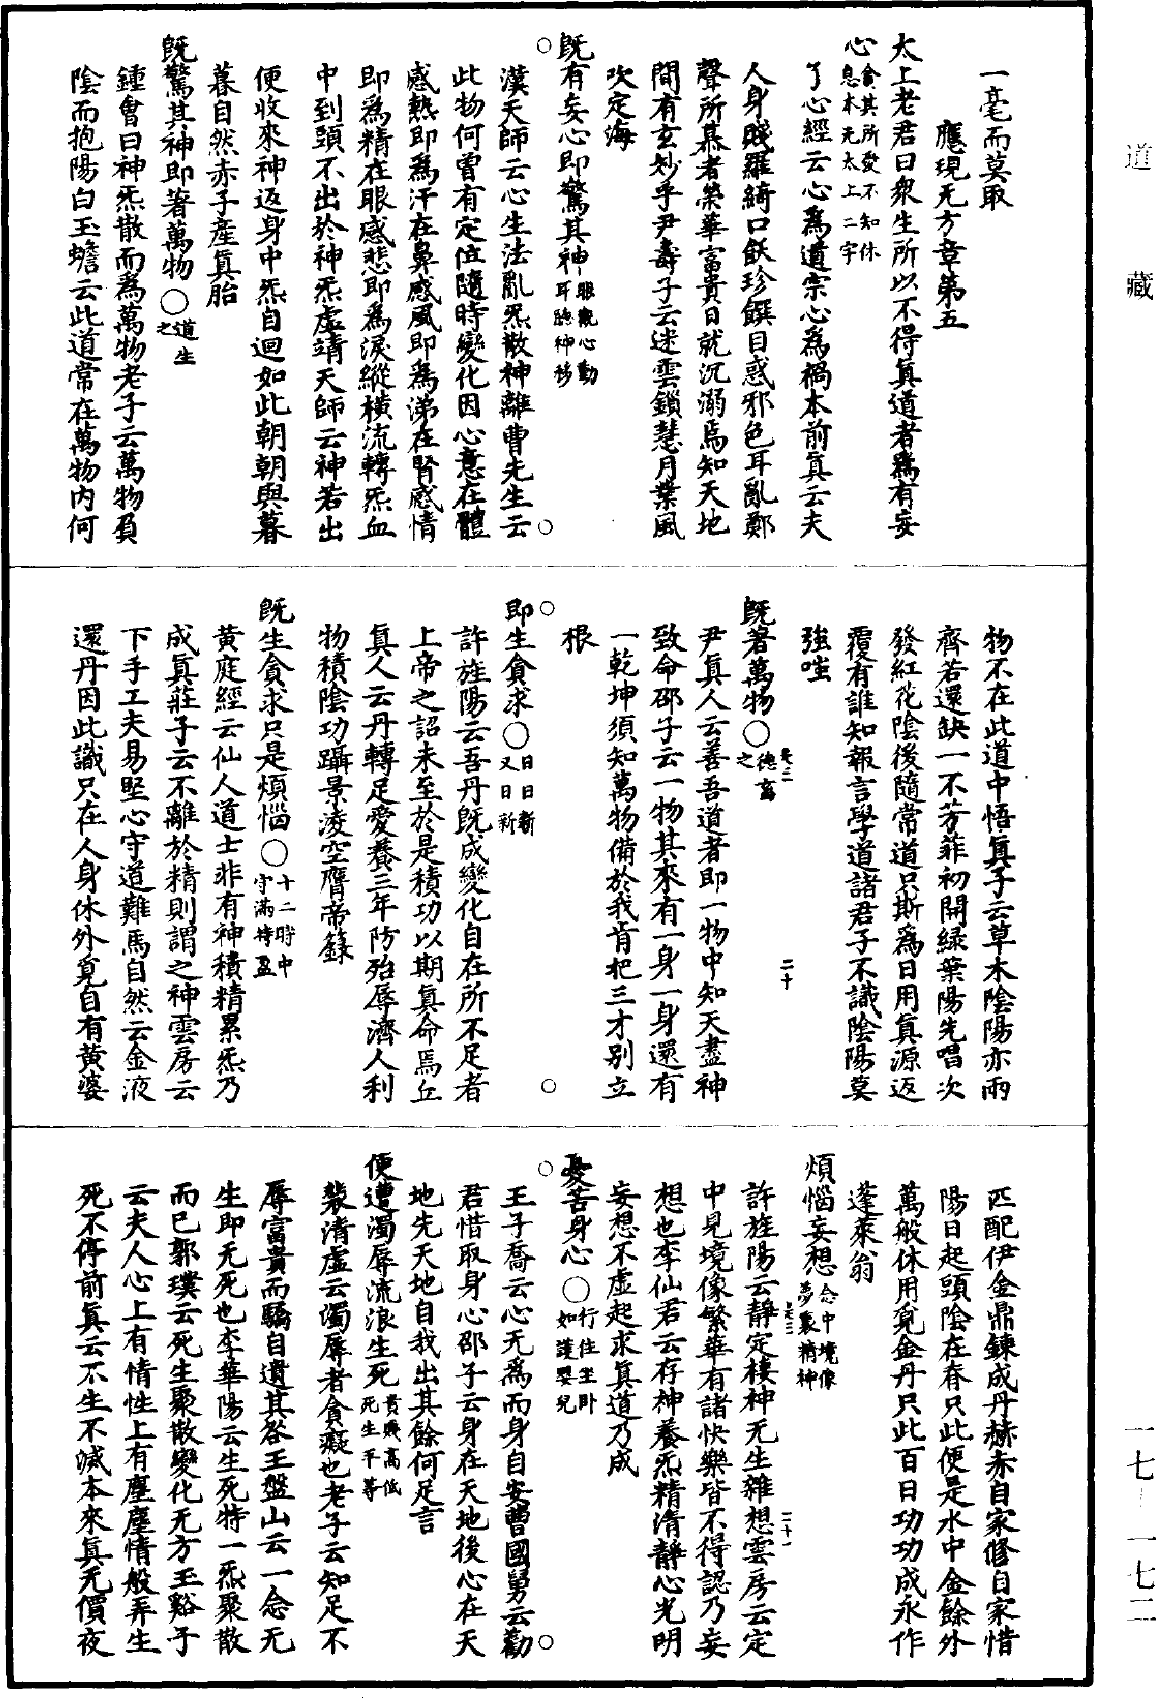 道藏
一七—一七二
一毫而莫取
應現无方章第五
太上老君曰衆生所以不得真道者爲有妄
心貪其所愛不知休息本无太上二字
了心經云心爲道宗心爲禍本前真云夫
人身賤羅綺口飫珍饌目惑邪色耳亂鄭
聲所慕者榮華富貴日就沉溺焉知天地
間有玄妙乎尹壽子云迷雲鎖慧月業風
吹定海
既有妄心即驚其神眼觀心動耳聽神移
漢天師云心生法亂炁散神離曹先生云
此物何曾有定位隨時變化因心意在體
感熱即爲汗在鼻感風即爲涕在腎感情
即爲精在眼感悲即爲淚縱橫流轉炁血
中到頭不出於神炁虛靖天師云神若出
便收來神返身中炁自迴如此朝朝與暮
暮自然赤子產真胎
既驚其神即著萬物〇道生之
鍾會曰神炁散而爲萬物老子云萬物負
陰而抱陽白玉蟾云此道常在萬物内何
物不在此道中悟真子云草木陰陽亦兩
齊若還缺一不芳菲初開緑葉陽先唱次
發紅花陰後隨常道只斯爲日用真源返
覆有誰知報言學道諸君子不識陰陽莫
強嗤
卷三 二十
既著萬物〇德畜之
尹真人云善吾道者即一物中知天盡神
致命邵子云一物其來有一身一身還有
一乾坤須知萬物備於我肯把三才别立
根
即生貪求〇日日新又日新
許旌陽云吾丹既成變化自在所不足者
上帝之詔未至於是積功以期真命焉丘
真人云丹轉足愛養三年防殆辱濟人利
物積陰功躡景淩空膺帝籙
既生貪求只是煩惱〇十二時中守滿持盈
黄庭經云仙人道士非有神積精累炁乃
成真莊子云不離於精則謂之神雲房云
下手工夫易堅心守道難馬自然云金液
還丹因此識只在人身休外覓自有黄婆
匹配伊金鼎鍊成丹赫赤自家修自家惜
陽日起頭陰在春只此便是水中金餘外
萬般休用覓金丹只此百日功功成永作
蓬萊翁
煩惱妄想念中境像夢裏精神
卷三 二十一
許旌陽云靜定棲神无生雜想雲房云定
中見境像繁華有諸快樂皆不得認乃妄
想也李仙君云存神養炁精清靜心光明
妄想不虛起求真道乃成
憂苦身心〇行住坐卧如護嬰兒
王子喬云心无爲而身自安曹國舅云勸
君惜取身心邵子云身在天地後心在天
地先天地自我出其餘何足言
便遭濁辱流浪生死貴賤高低死生平等
裴清虛云濁辱者貪癡也老子云知足不
辱富貴而驕自遺其咎王盤山云一念无
生即无死也李華陽云生死特一炁聚散
而已郭璞云死生聚散變化无方玉谿子
云夫人心上有情性上有塵塵情般弄生
死不停前真云不生不滅本來真无價夜